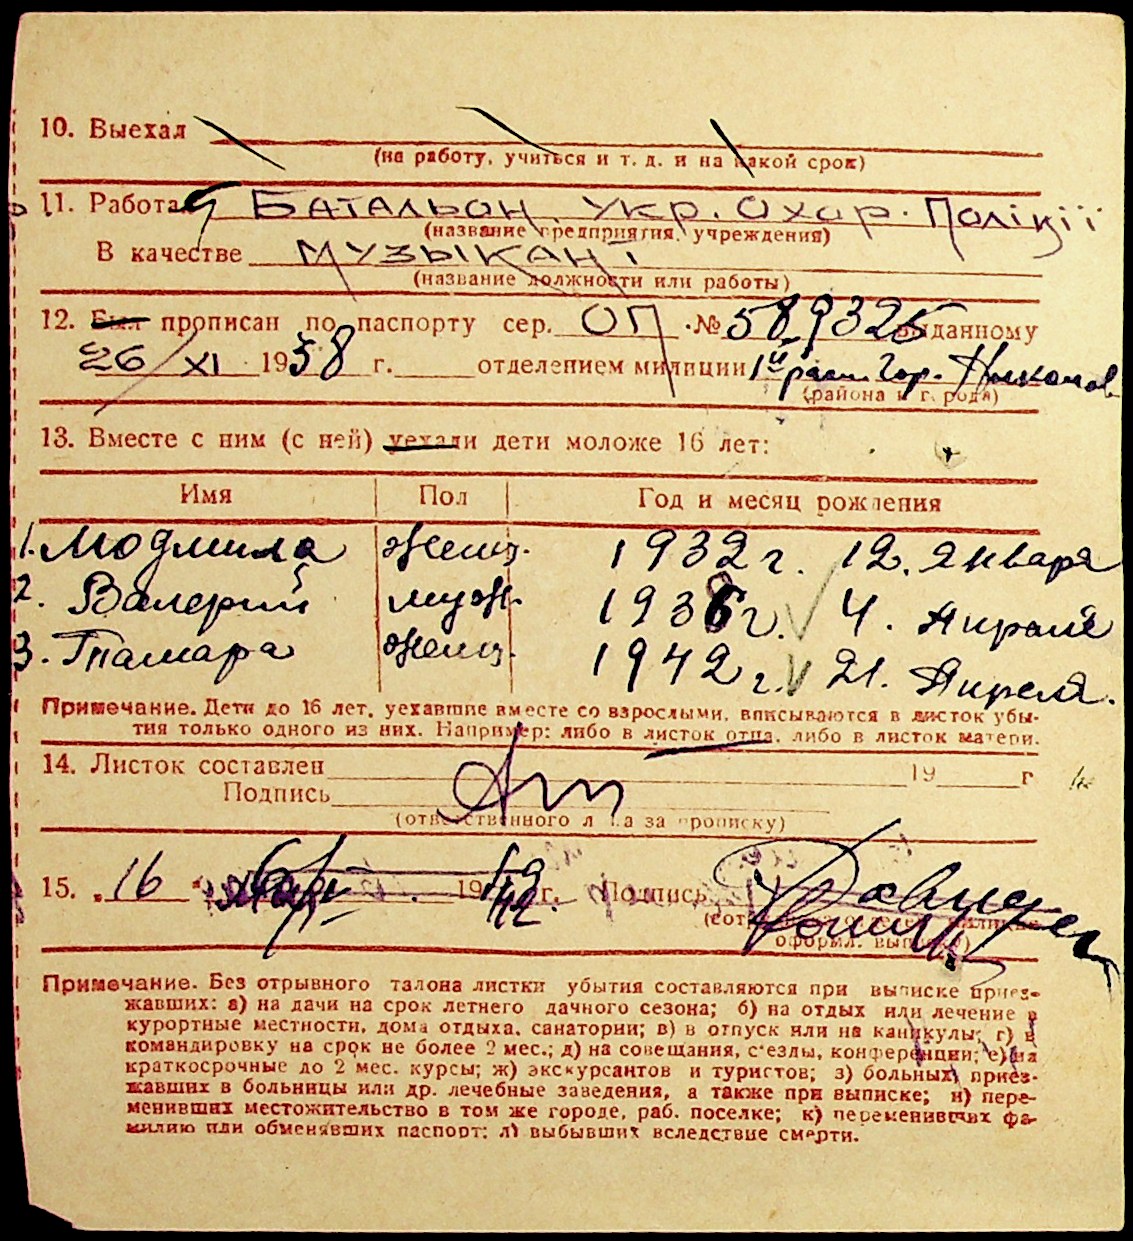 10. Выехал
(на работу, учиться и т. д. и на какой срок)
11. Работа Батальон. Укр. Охор. Поліції
(название предприятия, учреждения)
В качестве музыкант
(название должности или работы)
12. Был прописан по паспорту сер. ОП № 589325 выданному
26/XI 1938 г. отделением милиции 1й гор.
(района и города)
13. Вместе с ним (с ней) уехали дети моложе 16 лет:
Имя Пол Год и месяц рождения
1. Людмила женщ. 1932 г. 12. Января
2. Валерий мужч. 1938 г. 4. Апреля
3. Тамара женщ. 1942 г. 21. Апреля.
Примечание. Дети до 16 лет, уехавшие вместе со взрослыми, вписываются в листок убы-
тия только одного из них. Например: либо в листок отца, либо в листок матери.
14. Листок составлен 19 г
Подпись
(ответственного лица за прописку)
15. „16" 19 42 г. Подпись
оформл. выписку)
Примечание. Без отрывного талона листки убытия составляются при выписке приез-
жавших: а) на дачи на срок летнего дачного сезона; б) на отдых или лечение в
курортные местности, дома отдыха, санатории; в) в отпуск или на каникулы; г) в
командировку на срок не более 2 мес.; д) на совещания, с'езды, конференции; е) на
краткосрочные до 2 мес. курсы; ж) экскурсантов и туристов; з) больных, приез-
жавших в больницы или др. лечебные заведения, а также при выписке; и) пере-
менивших местожительство в том же городе, раб. поселке; к) переменивших фа-
милию или обменявших паспорт; л) выбывших вследствие смерти.